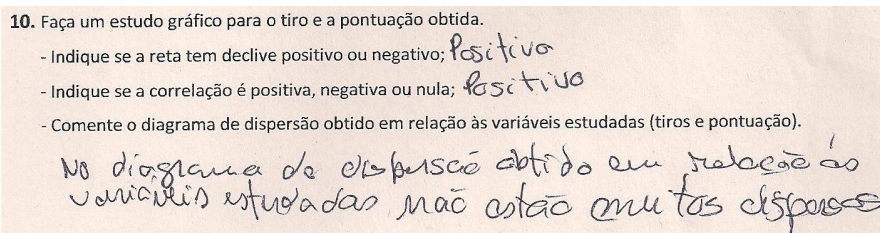 10. Faça um estudo gráfico para o tiro e a pontuação obtida.
- Indique se a reta tem declive positivo ou negativo; Positivo
- Indique se a correlação é positiva, negativa ou nula; Positivo
- Comente o diagrama de dispersão obtido em relação às variáveis estudadas (tiros e pontuação).
No diagrama de dispersão obtido em relação ás
variáveis estudadas não estão muitos dispersos